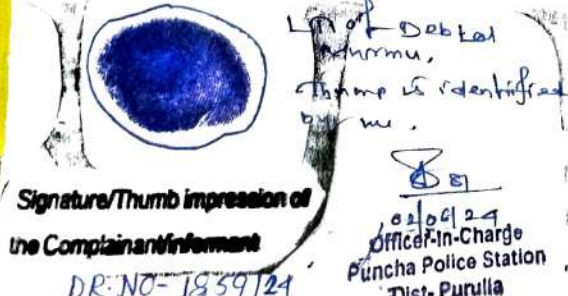 LTI of Deblal
Murmu.
Thump is identified
by me.
Signature/Thumb impression of
the Complainant/informent
02/06/24
Officer-In-Charge
Puncha Police Station
Dist- Purulia
DR. NO- 1859/24